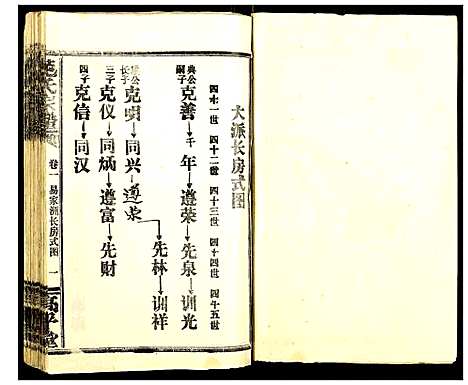 大派长房式图
四十一世 四十二世 四十三世 四十四世 四十五世
典公嗣子 克善→千年→遵荣→先泉→训光
长子 克唄→同兴→遵荣→先林→训祥
三子 克仪→同炳→遵富→先财
四子 克信→同汉
范氏宗谱
卷一 易家湎长房式图 一
高平堂